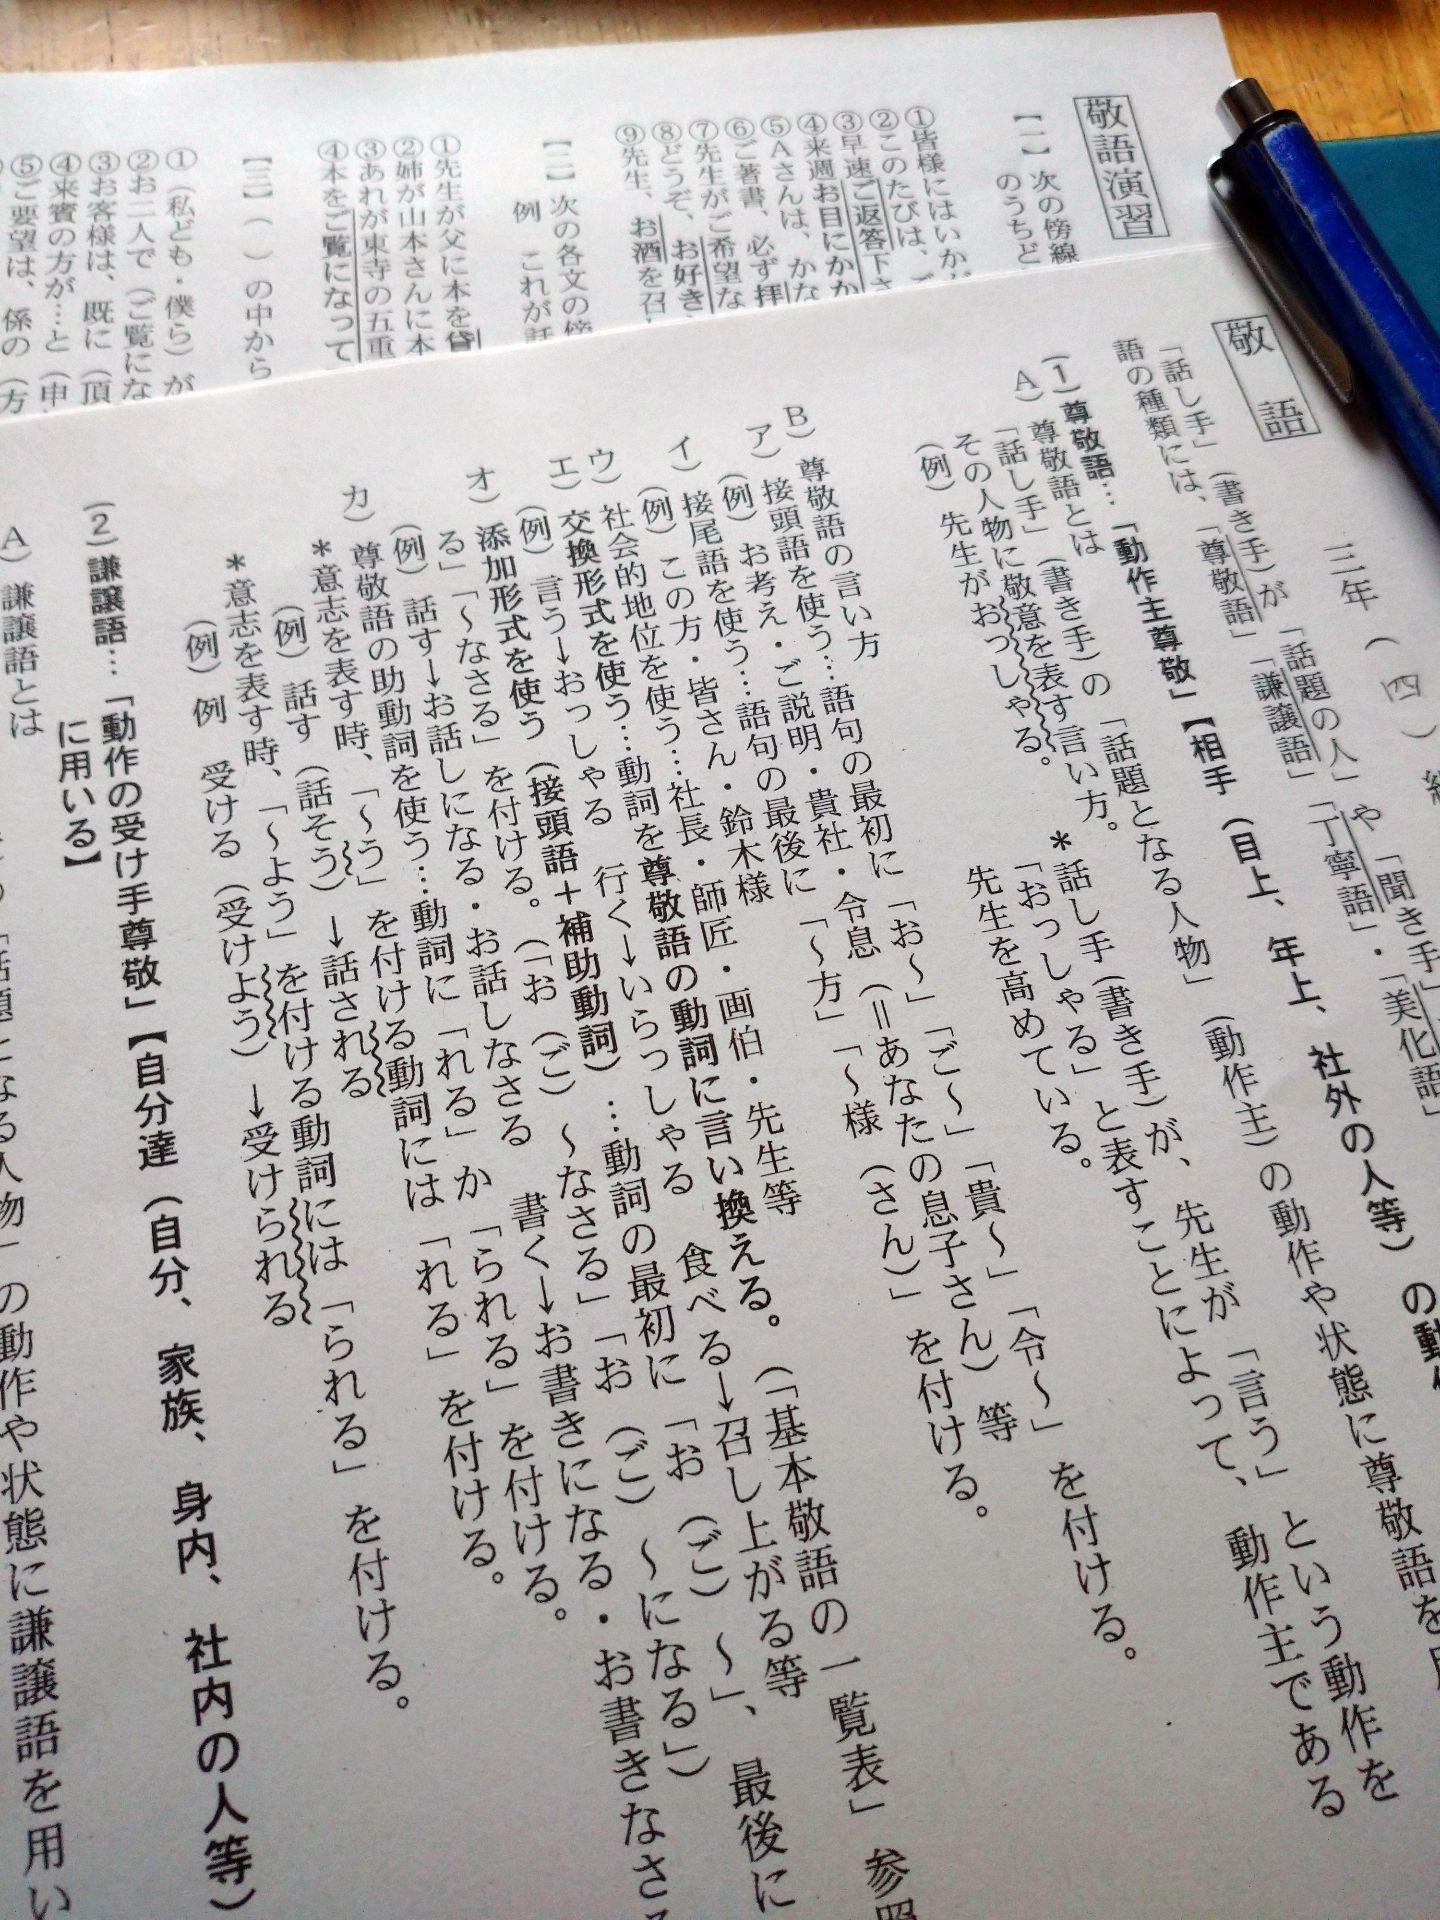 敬語
三年(四)
「話し手」(書き手)が「話題の人」や「聞き手」
語の種類には、「尊敬語」「謙譲語」「丁寧語」・「美化語」
(1)尊敬語…「動作主尊敬」【相手(目上、年上、社外の人等)の動作
A)尊敬語とは
「話し手」(書き手)の「話題となる人物」(動作主)の動作や状態に尊敬語を用
その人物に敬意を表す言い方。
(例)先生がおっしゃる。
*話し手(書き手)が、先生が「言う」という動作を
「おっしゃる」と表すことによって、動作主である
先生を高めている。
B)尊敬語の言い方
ア)接頭語を使う…語句の最初に「お~」「ご~」「貴~」「令~」を付ける。
(例)お考え・ご説明・貴社・令息(=あなたの息子さん)等
イ)接尾語を使う…語句の最後に「~方」「~様(さん)」を付ける。
(例)この方・皆さん・鈴木様
ウ)社会的地位を使う…社長・師匠・画伯・先生等
エ)交換形式を使う…動詞を尊敬語の動詞に言い換える。(「基本敬語の一覧表」参照
(例)言う→おっしゃる 行く→いらっしゃる 食べる→召し上がる等
オ)添加形式を使う(接頭語+補助動詞)…動詞の最初に「お(ご)~」、最後に
る」「~なさる」を付ける。(「お(ご)~なさる」「お(ご)~になる」)
(例)話す→お話しになる・お話しなさる 書く→お書きになる・お書きなさる
カ)尊敬語の助動詞を使う…動詞に「れる」か「られる」を付ける。
*意志を表す時、「~う」を付ける動詞には「れる」を付ける。
(例)話す(話そう)→話される
*意志を表す時、「~よう」を付ける動詞には「られる」を付ける。
(例)例 受ける(受けよう)→受けられる
(2)謙譲語…「動作の受け手尊敬」【自分達(自分、家族、身内、社内の人等)
に用いる】
A)謙譲語とは
「話題となる人物」の動作や状態に謙譲語を用い
敬語演習
【一】次の傍線
のうちど
①皆様にはいかが
②このたびは、ご
③早速ご返答下さ
④来週お目にかか
⑤Aさんは、かな
⑥ご著書、必ず拝
⑦先生がご希望な
⑧どうぞ、お好き
⑨先生、お酒を召
【二】次の各文の傍
例 これが話
①先生が父に本を貸
②姉が山本さんに本
③あれが東寺の五重
④本をご覧になって
【三】( )の中から
①(私ども・僕ら)が
②お二人で(ご覧にな
③お客様は、既に(頂
④来賓の方が…と(申
⑤ご要望は、係の(方